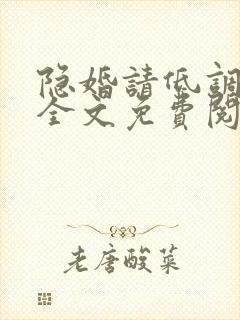 隐婚請低調
全文免費閱
老唐酸菜